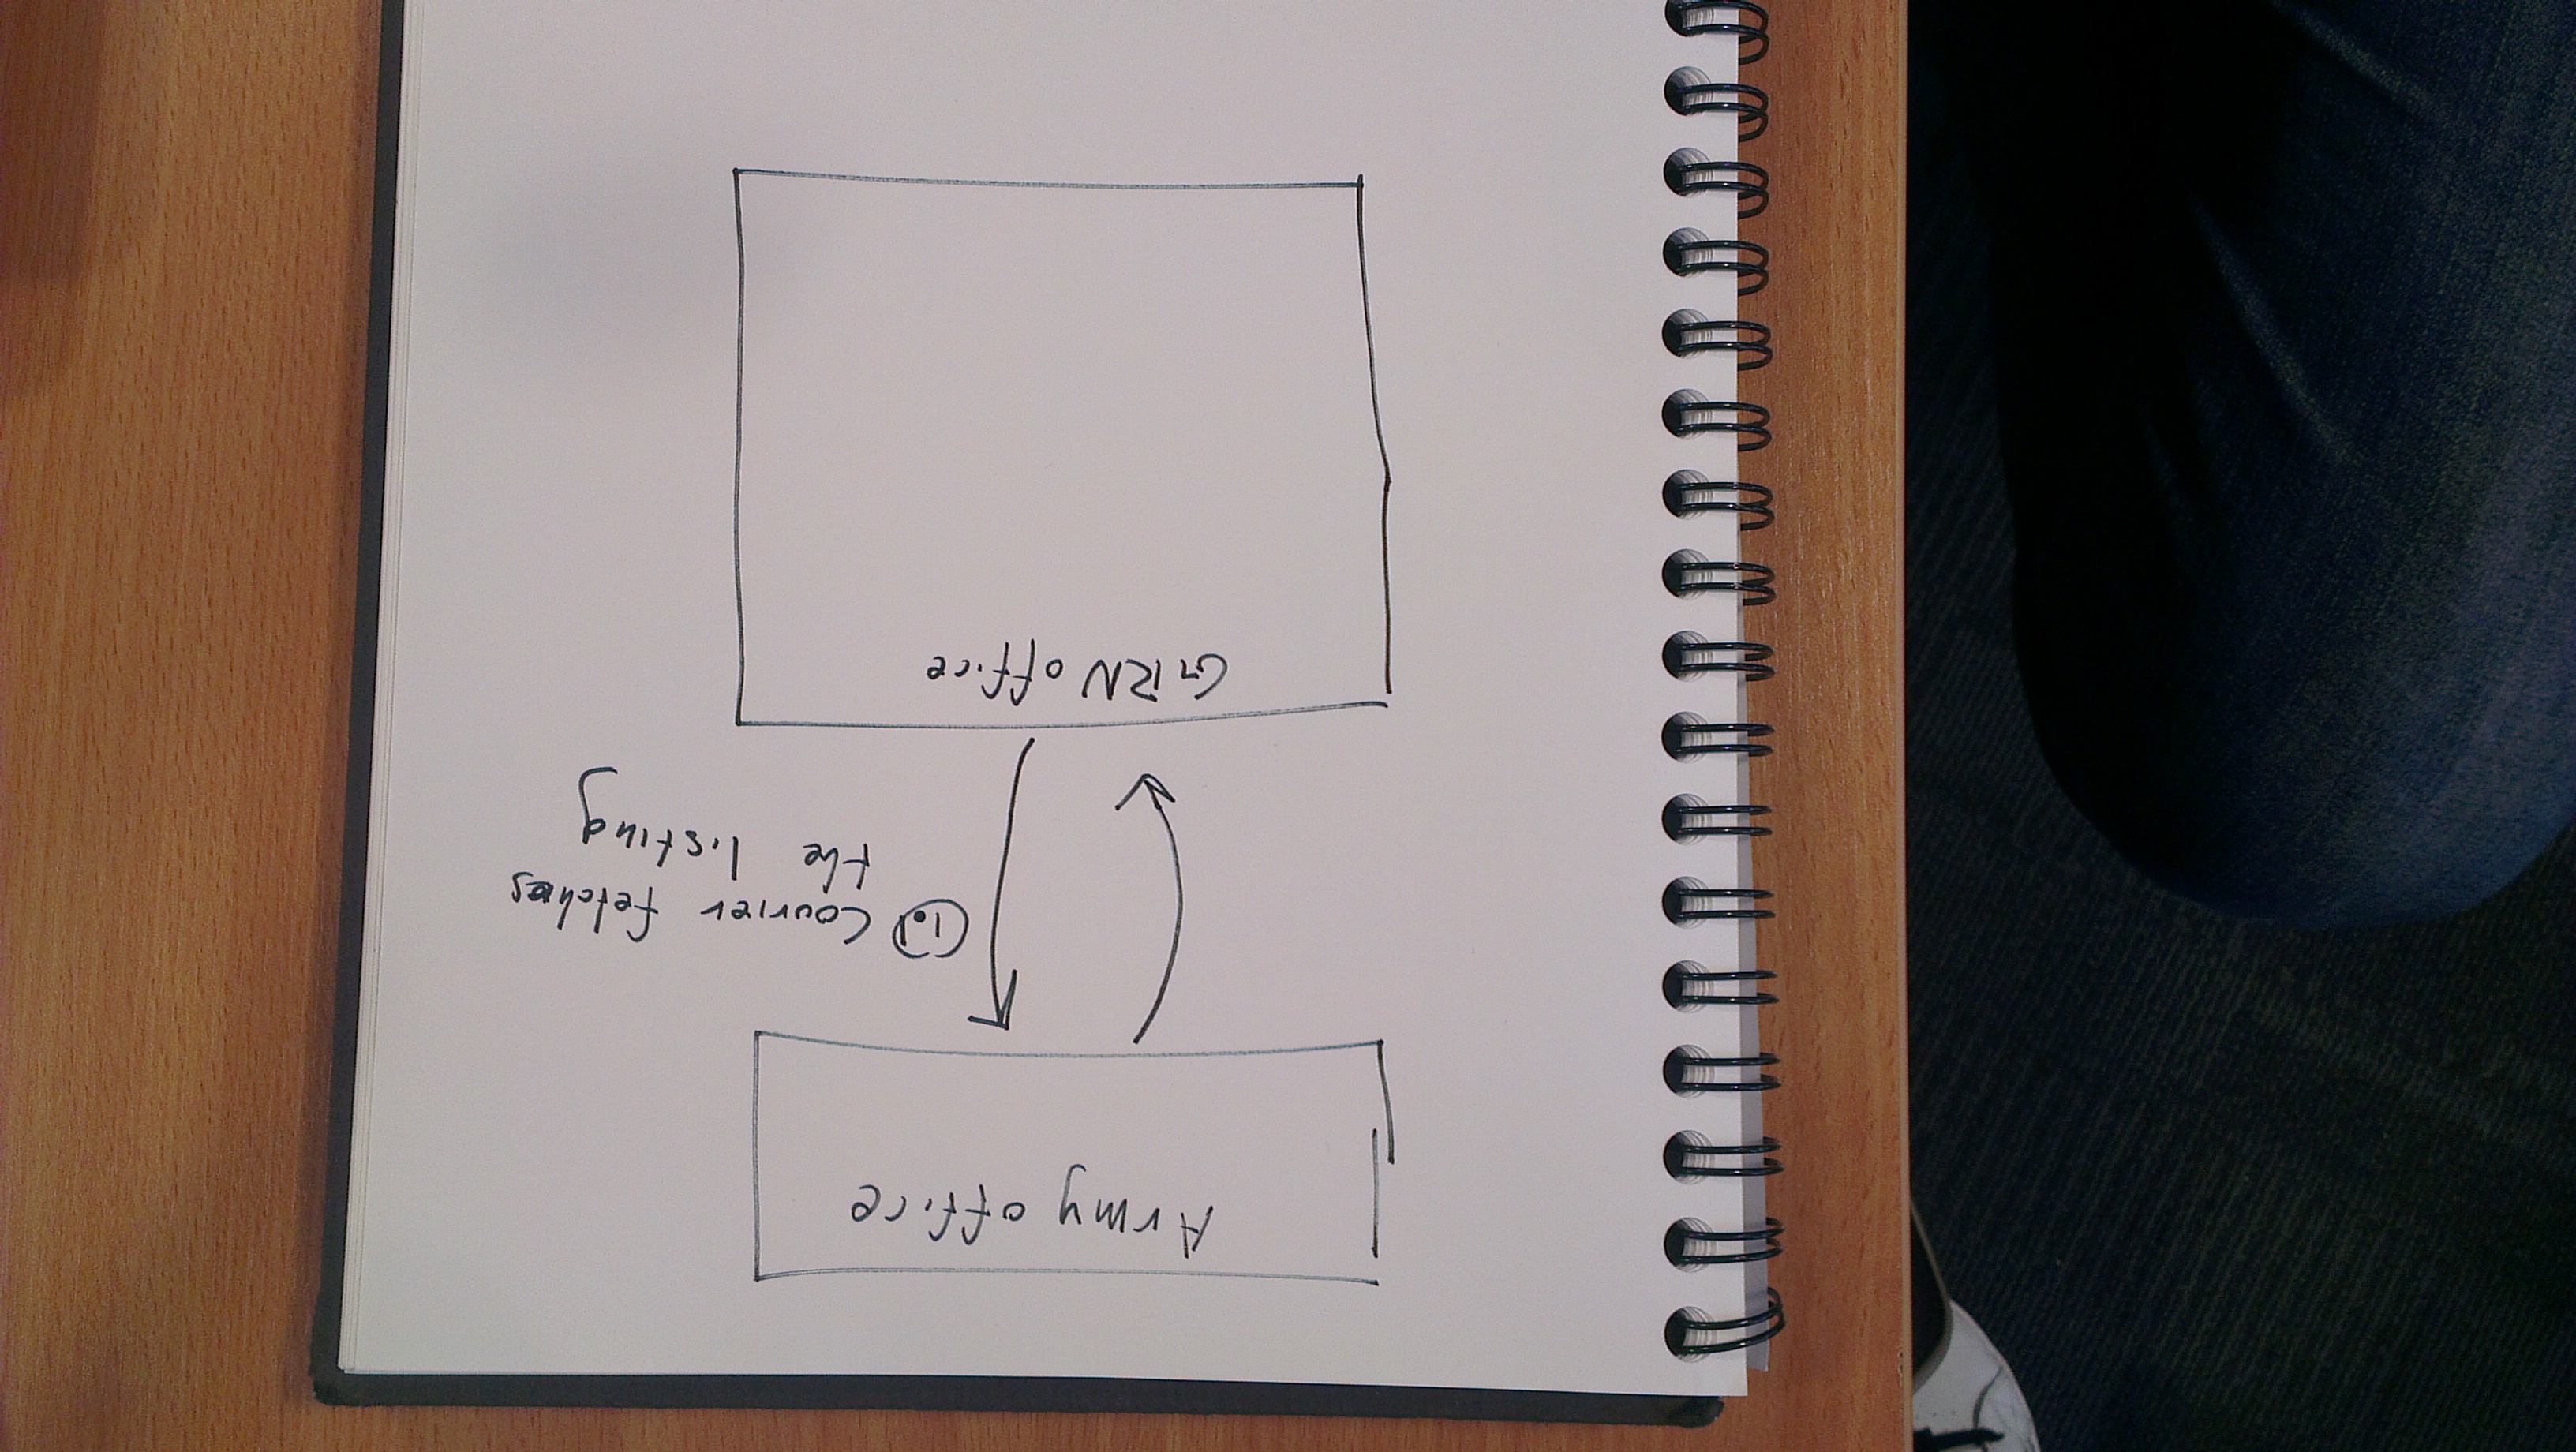 Army office
1. Courier fetches
the listing
GRN office